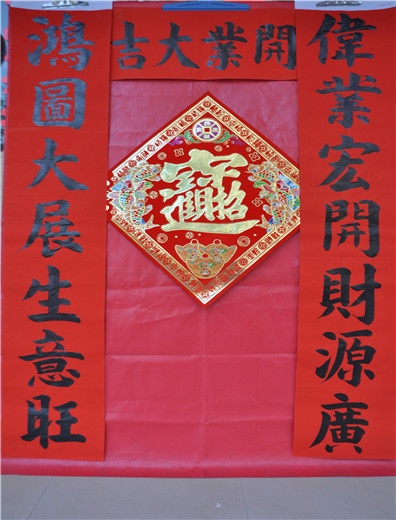 偉業宏開財源廣
鴻圖大展生意旺
開業大吉
招財進寶